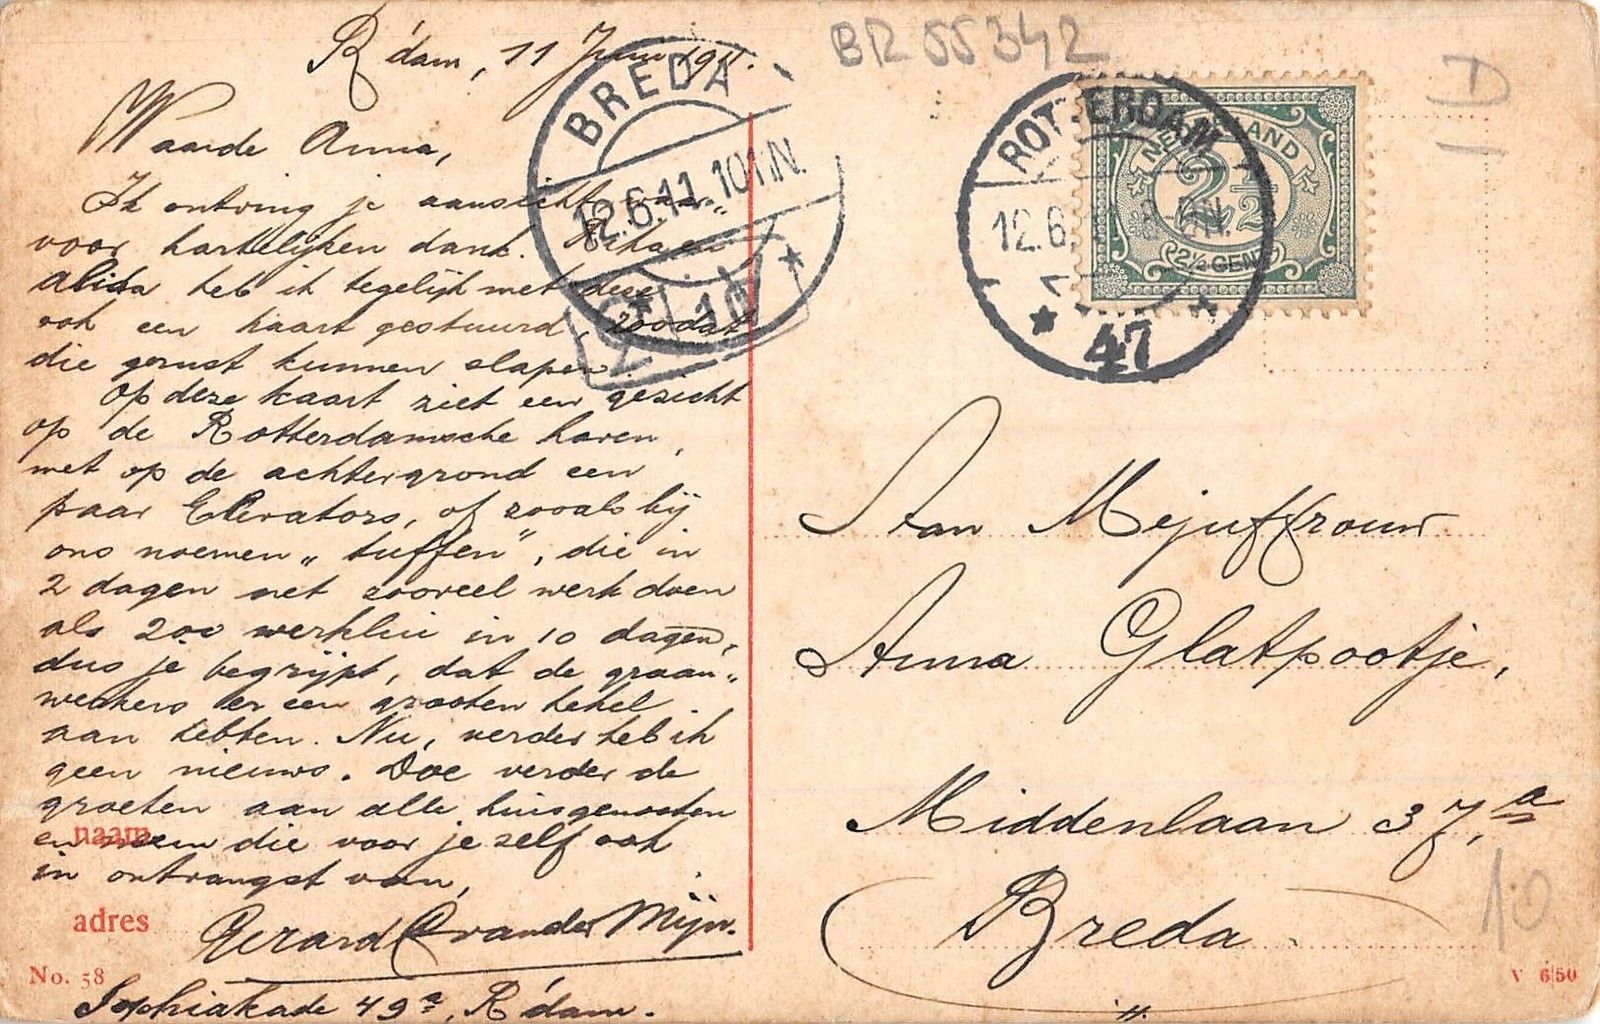 R'dam, 11 Juni 1911.
Waarde Anna,
Ik ontving je aansicht, waar„
voor hartelijken dank.
Alida heb ik tegelijk met deze
ook een kaart gestuurd, zoodat
die gerust kunnen slapen.
Op deze kaart ziet een gezicht
op de Rotterdamsche haven,
met op de achtergrond een
paar Elevators, of zooals bij
ons noemen „tuffen", die in
2 dagen net zooveel werk doen
als 200 werklui in 10 dagen,
dus je begrijpt, dat de graan„
werkers er een grooten hekel
aan hebben. Nu, verder heb ik
geen nieuws. Doe verder de
groeten aan alle huisgenooten
en neem die voor je zelf ook
in ontvangst van,
Gerard C van der Mijn.
Sophiakade 49a, R'dam.
naam
adres
No. 58
BREDA
12.6.11. 10 N.
10
BR 55342
D
ROTTERDAM
12.6
47
NEDERLAND
2½
2½ CENT
Aan Mejuffrouw
Anna Glatpootje,
Middenlaan 37,a
Breda
10
V 6150